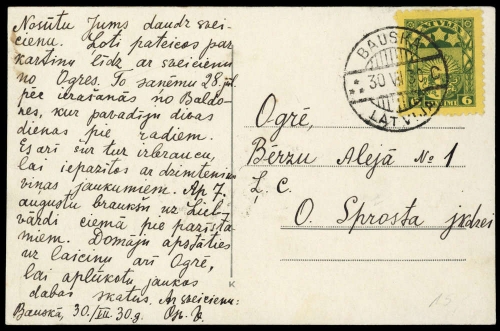 Nosūtu Jums daudz svei-
cienu. Ļoti pateicos par
kartiņu līdz ar sveicienu
no Ogres. To saņēmu 28. jūl.
pēc ierašanās no Baldo-
nes, kur pavadīju divas
dienas pie radiem.
Es arī šur tur izbraucu,
lai iepazītos ar dzimteni
viņas jaukumiem. Ap 7.
augustu braukšu uz Liel-
vārdi ciemā pie pazīsta-
miem. Domāju apstāties
uz laiciņu arī Ogrē,
lai aplūkotu jaukos
dabas skatus. Ar sveicienu:
Bauskā, 30./VII. 30. g.
Ogrē,
Bērzu Alejā No 1
Ļ. C.
O. Sprosta jkdzei
LATVIJA
6
BAUSKA
30 VII
LATVIJA
K
15